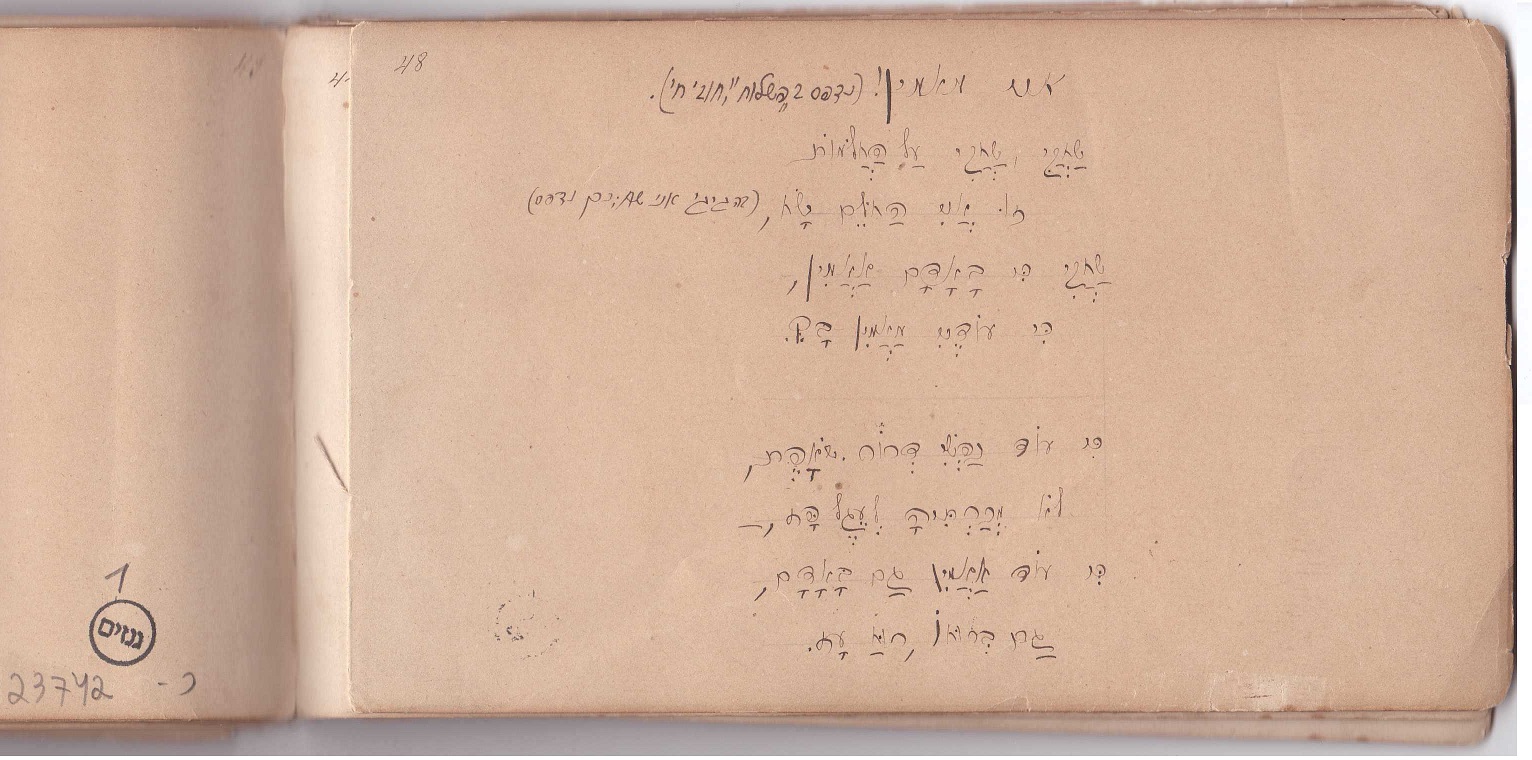 48
אני מאמין! (נדפס ב„השלוח", חוב' חי).
שַׂחֲקִי, שַׂחֲקִי עַל הַחֲלֹמוֹת
זוּ אֲנִי הַחוֹלֵם שָׂח, (בהגיגי אני שׁח; וכן נדפס)
שַׂחֲקִי כִּי בָאָדָם אַאֲמִין,
כִּי עוֹדֶנִּי מַאֲמִין בָּךְ.
כִּי עוֹד נַפְשִׁי דְּרוֹר שׁוֹאֶפֶת,
לֹא מְכַרְתִּיהָ לְעֵגֶל פָּז, –
כִּי עוֹד אַאֲמִין גַּם בָּאָדָם,
גַּם בְּרוּחוֹ, רוּחַ עָז.
1
גנזים
23742 - כ